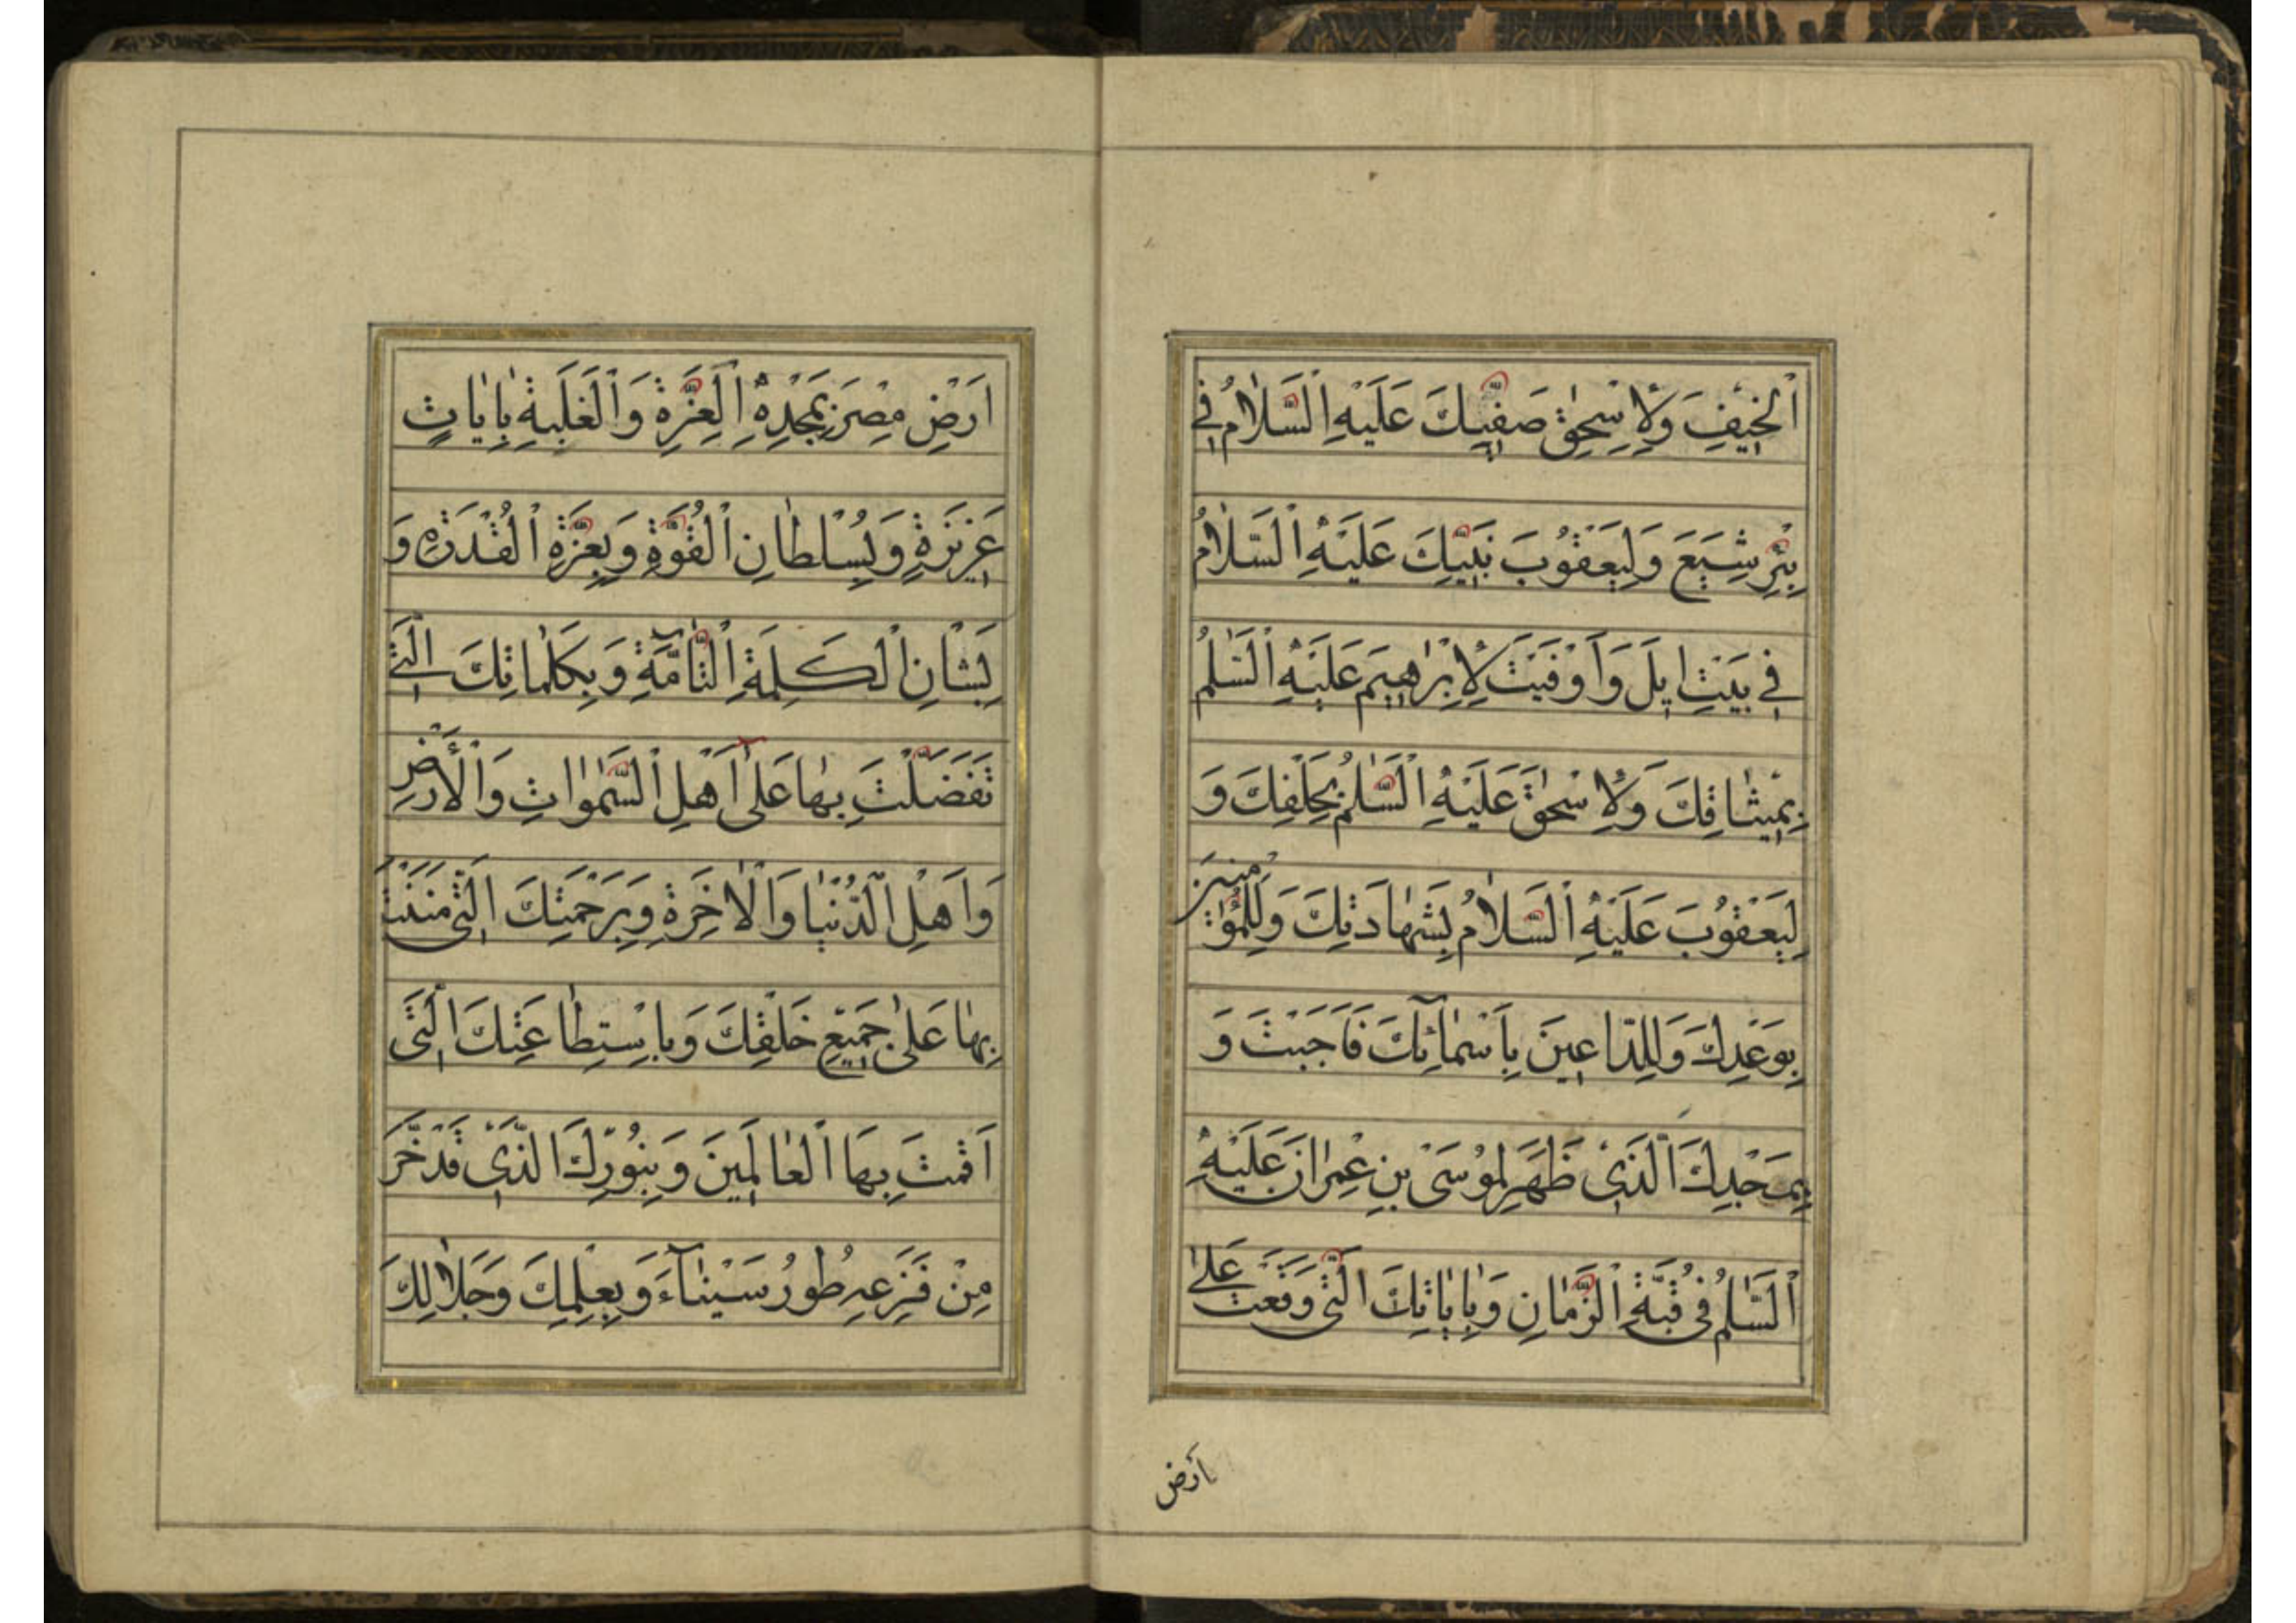 اَلْخَيْفِ وَلِاِسْحٰقَ صَفِيِّكَ عَلَيْهِ اَلسَّلَامُ فِي
بِئْرِ شِيَعٍ وَلِيَعْقُوبَ نَبِيِّكَ عَلَيْهِ اَلسَّلَامُ
فِي بَيْتِ اِيلَ وَاَوْفَيْتَ لِاِبْرٰهِيمَ عَلَيْهِ اَلسَّلٰمُ
بِمِيْثٰاقِكَ وَلِاِسْحٰقَ عَلَيْهِ اَلسَّلٰمُ بِحَلْفِكَ وَ
لِيَعْقُوبَ عَلَيْهِ اَلسَّلَامُ بِشَهٰادَتِكَ وَلِلْمُؤْمِنِينَ
بِوَعْدِكَ وَلِلدّٰاعِينَ بِاَسْمٰائِكَ فَاَجَبْتَ وَ
بِمَجْدِكَ اَلَّذِي ظَهَرَ لِمُوسَى بْنِ عِمْرٰانَ عَلَيْهِ
اَلسَّلٰمُ فِي قُبَّةِ اَلزَّمٰانِ وَبِاٰيٰاتِكَ اَلَّتِي وَقَعَتْ عَلىٰ
اَرْضِ
اَرْضِ مِصْرَ بِمَجْدِهِ اَلْعِزَّةِ وَاَلْغَلَبَةِ بِاٰيٰاتٍ
عَزِيزَةٍ وَبِسُلْطٰانِ اَلْقُوَّةِ وَبِعِزَّةِ اَلْقُدْرَةِ وَ
بِشَانِ اَلْكَلِمَةِ اَلتّٰامَّةِ وَبِكَلِمٰاتِكَ اَلَّتِي
تَفَضَّلْتَ بِهٰا عَلىٰ اَهْلِ اَلسَّمٰوٰاتِ وَاَلْأَرْضِ
وَاَهْلِ اَلدُّنْيٰا وَاَلْاٰخِرَةِ وَبِرَحْمَتِكَ اَلَّتِي مَنَنْتَ
بِهٰا عَلىٰ جَمِيْعِ خَلْقِكَ وَبِاسْتِطٰاعَتِكَ اَلَّتِي
اَقَمْتَ بِهَا اَلْعٰالَمِينَ وَبِنُورِكَ اَلَّذِي قَدْ خَرَّ
مِنْ فَزَعِهِ طُورُ سَيْنٰآءَ وَبِعِلْمِكَ وَجَلَالِكَ